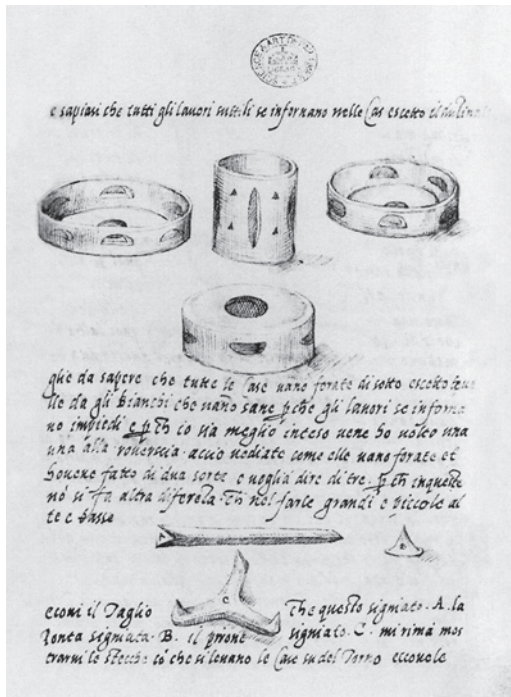 e sapiasi che tutti gli lavori sutili se infornano nelle Case escetto el dalino
gliè da sapere che tutte le Case vano forate di sotto escetto
lle da gli bianchi che vano sane p che gli lavori se inforna
no impiedi e p ch io sia meglio inteso vene ho volto una
una alla roverscia acciò vediate come elle vano forate et
hovene fatto di dua sorte e voglia dire di tre p ch in queste
nō si fa altra diferēla ch nel farle grandi e piccole al
te e basse
A
B
C
econi il Taglio che questo signiato . A . la
Ponta signiata . B . il pirone signiato . C . mi rimā mos
trarvi le stecche cō che si levano le Case su del Torno eccovele